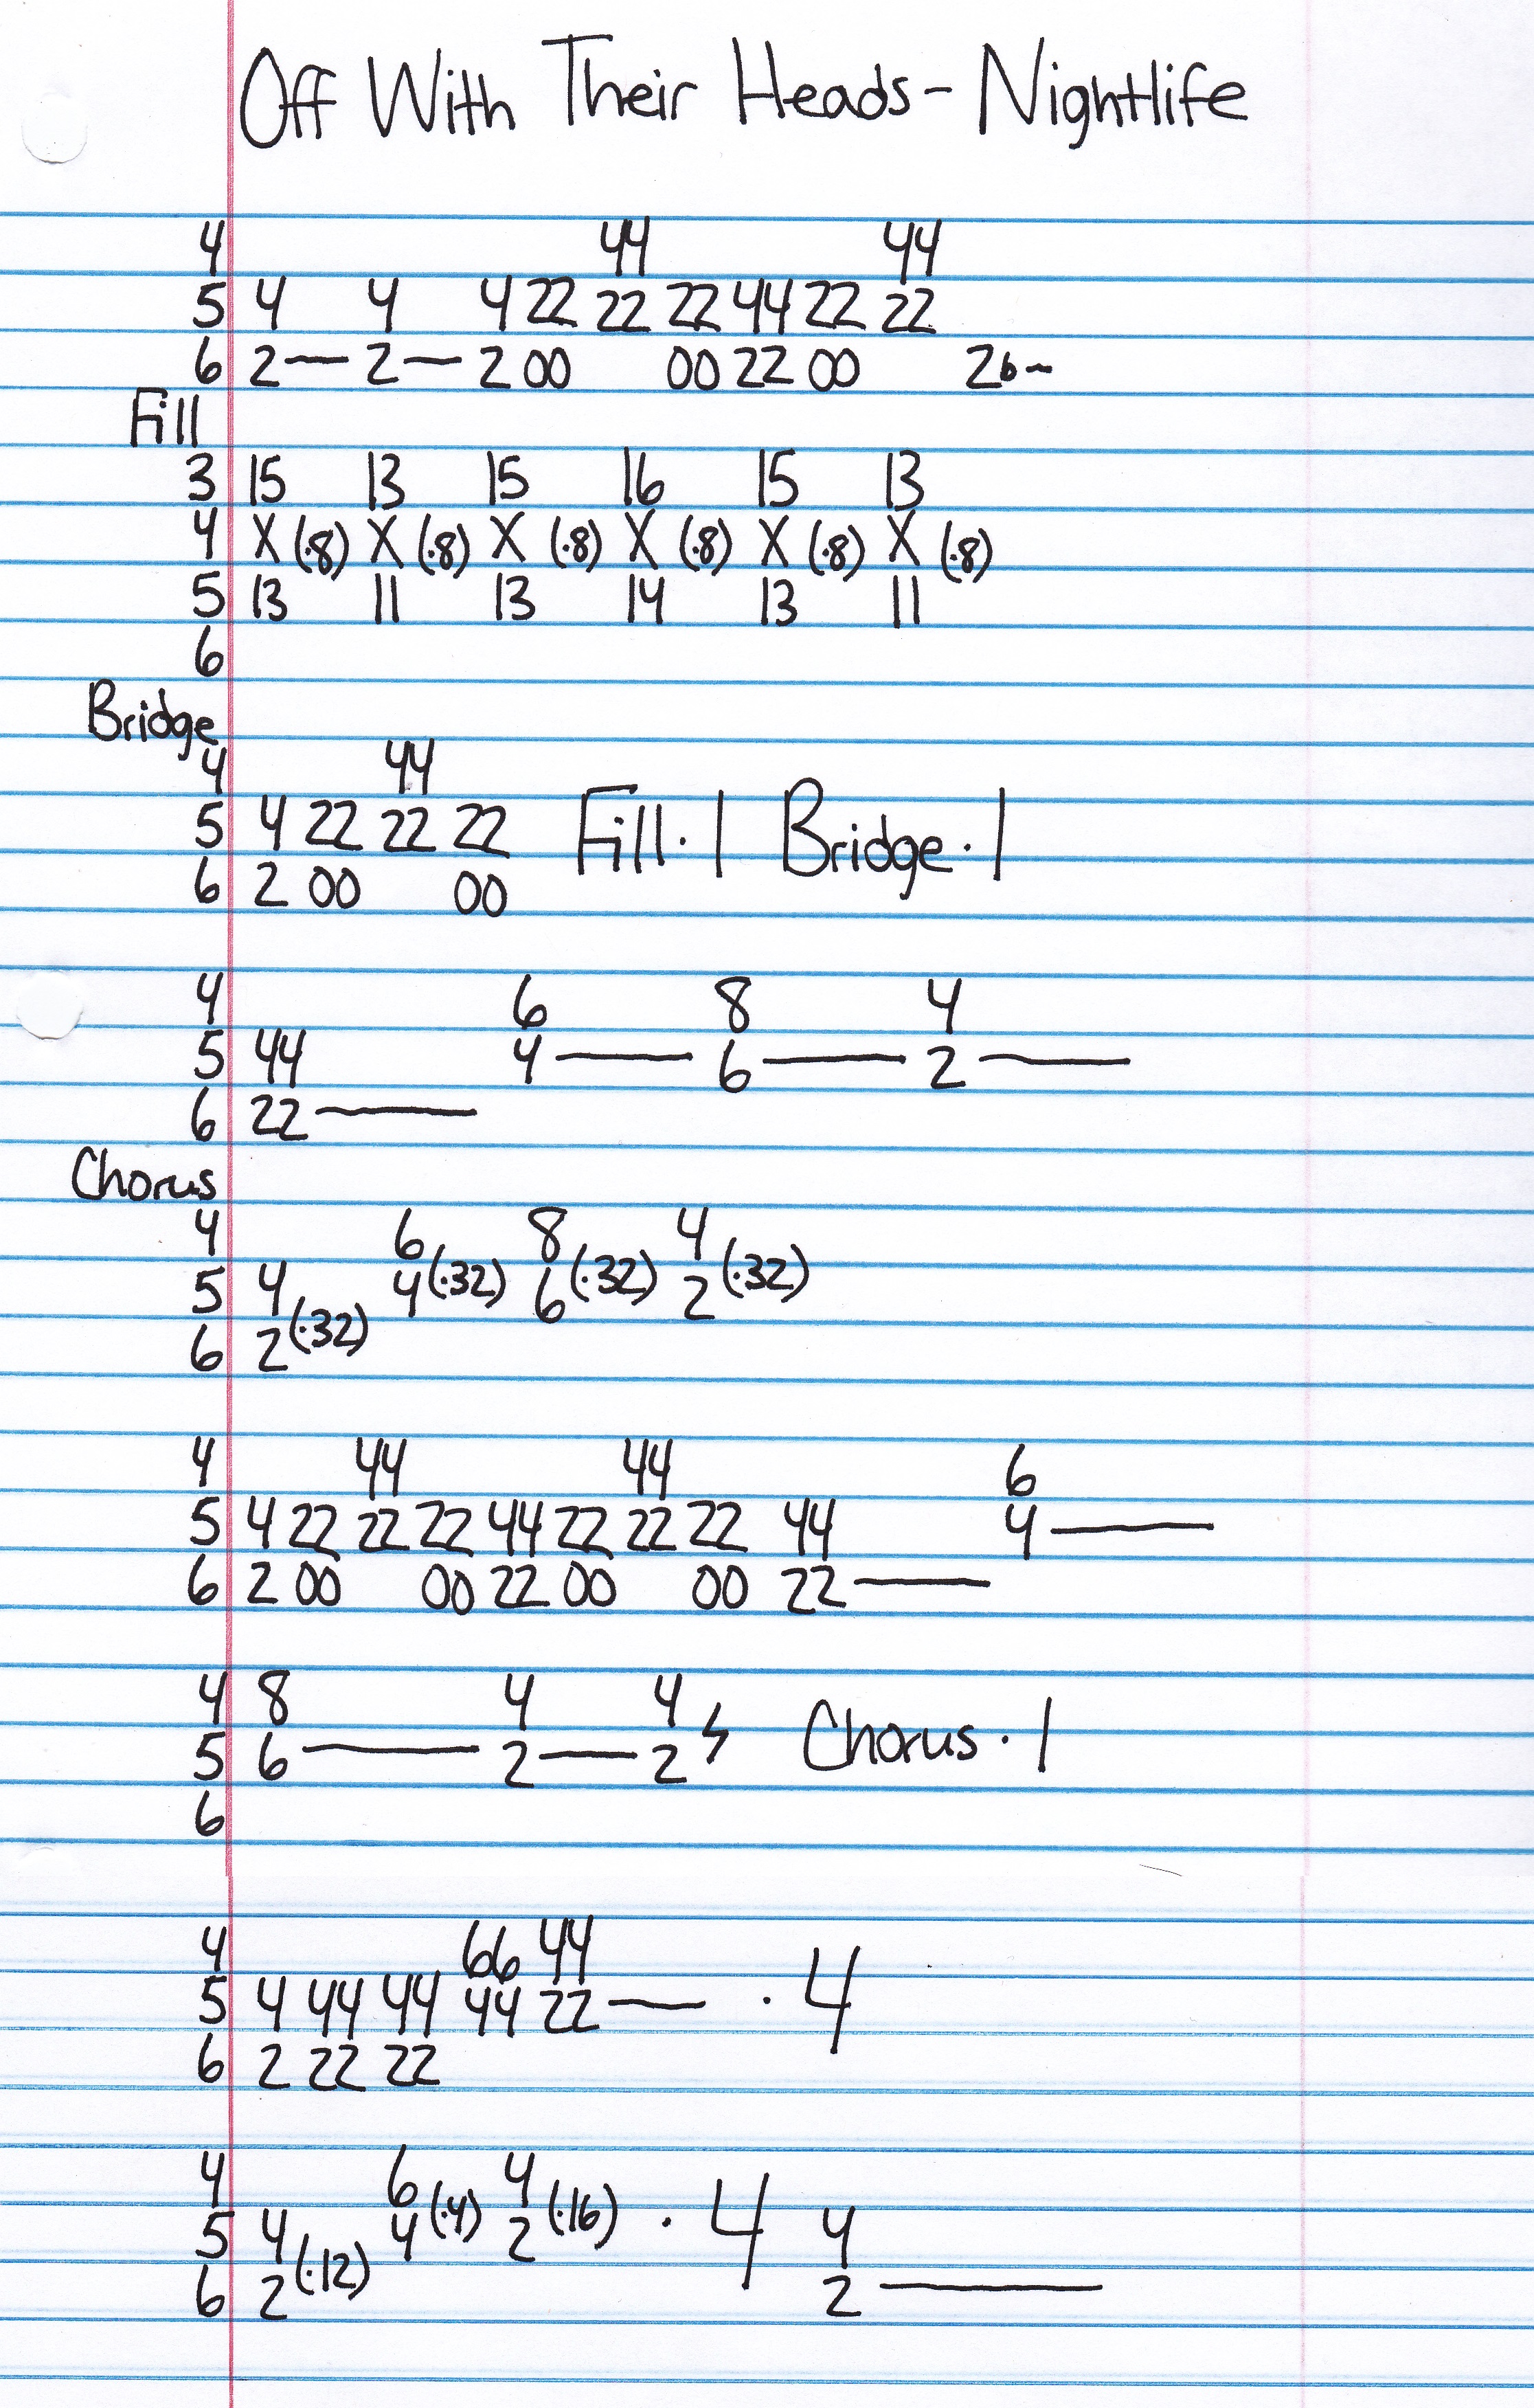 Off With Their Heads - Nightlife
4 44 44
5 4 4 4 22 22 22 44 22 22
6 2 — 2 — 2 00 00 22 00 2b~
Fill
3 15 13 15 16 15 13
4 X (·8) X (·8) X (·8) X (·8) X (·8) X (·8)
5 13 11 13 14 13 11
6
Bridge
4 44
5 4 22 22 22 Fill · 1 Bridge · 1
6 2 00 00
4 6 8 4
5 44 4 — 6 — 2 —
6 22 —
Chorus
4 6 8 4
5 4 4 (·32) 6 (·32) 2 (·32)
6 2 (·32)
4 44 44 6
5 4 22 22 22 44 22 22 22 44 4 —
6 2 00 00 22 00 00 22 —
4 8 4 4
5 6 — 2 — 2 Chorus · 1
6
4 66 44
5 4 44 44 44 22 — · 4
6 2 22 22
4 6 4
5 4 4 (·4) 2 (·16) · 4 4
6 2 (·12) 2 —